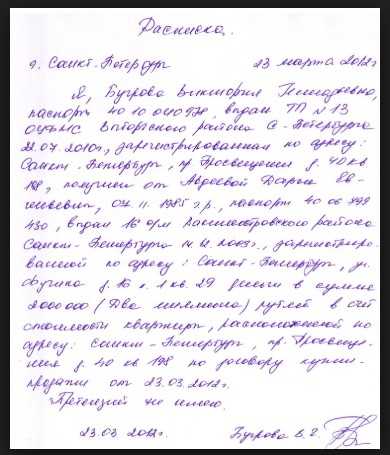 Расписка.
г. Санкт-Петербург 23 марта 2012г
Я, Бугрова Виктория Геннадьевна,
паспорт 40 10 выдан ТП №13
Выборгского района С-Петербурга
22.07.2010г, зарегистрированная по адресу:
Санкт-Петербург, пр Просвещения д. 40 кв
198, получила от Авдеевой Дарьи Ев-
геньевны, 1985 г.р., паспорт 40 06
430, выдан 16 о/м Василеостровского района
Санкт-Петербурга зарегистриро-
ванной по адресу: Санкт-Петербург, ул.
д. 16 кв. 29 деньги в сумме
2000000 (Два миллиона) рублей в счет
стоимости квартиры, расположенной по
адресу: Санкт-Петербург, пр. Просвеще-
ния д. 40 кв 198 по договору купли-
продажи от 23.03.2012г.
Претензий не имею.
23.03 2012г. Бугрова В. Г.